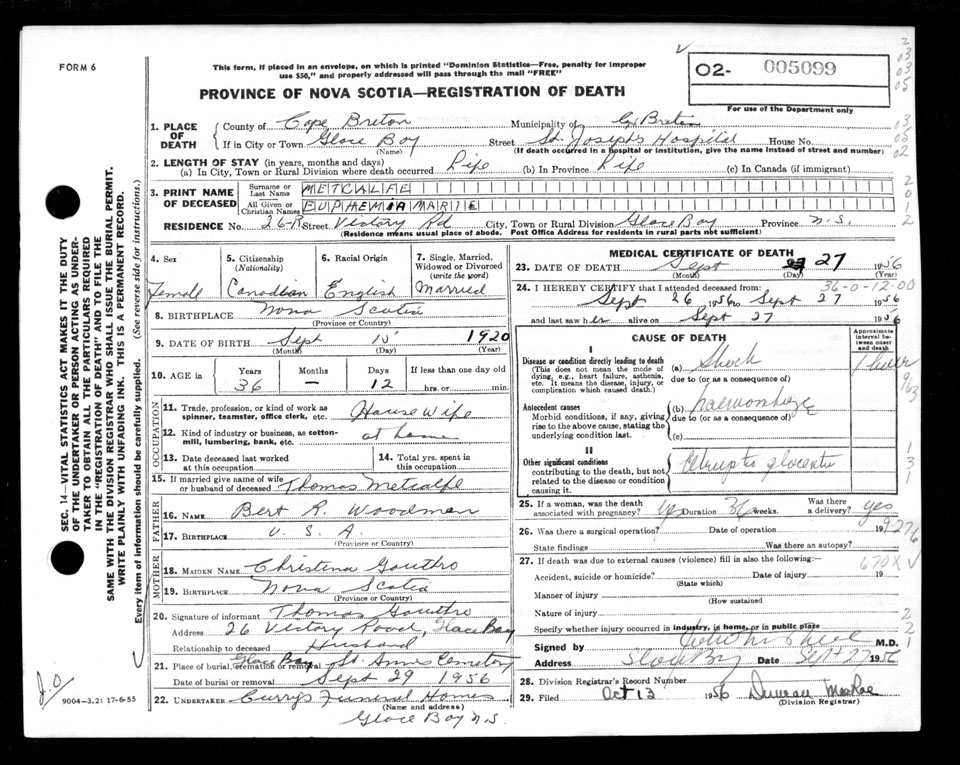 FORM 6
This form, if placed in an envelope, on which is printed "Dominion Statistics—Free, penalty for improper
use $50," and properly addressed will pass through the mail "FREE"
O2- 005099
For use of the Department only
PROVINCE OF NOVA SCOTIA—REGISTRATION OF DEATH
1. PLACE OF DEATH
County of Cape Breton Municipality of C. Breton
If in City or Town Glace Bay Street St. Joseph's Hospital House No.
(Name) (If death occurred in a hospital or institution, give the name instead of street and number)
2. LENGTH OF STAY (in years, months and days)
(a) In City, Town or Rural Division where death occurred Life (b) In Province Life (c) In Canada (if immigrant)
3. PRINT NAME OF DECEASED
Surname or Last Name METCALFE
All Given or Christian Names EUPHEMIA MARIE
RESIDENCE No. 26-R Street Victory Rd City, Town or Rural Division Glace Bay Province N.S.
(Residence means usual place of abode. Post Office Address for residents in rural parts not sufficient)
4. Sex Female
5. Citizenship (Nationality) Canadian
6. Racial Origin English
7. Single, Married, Widowed or Divorced (write the word) Married
8. BIRTHPLACE Nova Scotia
(Province or Country)
9. DATE OF BIRTH Sept 15 1920
(Month) (Day) (Year)
10. AGE in Years 36 Months — Days 12 If less than one day old hrs. or min.
OCCUPATION
11. Trade, profession, or kind of work as spinner, teamster, office clerk, etc. House wife
12. Kind of industry or business, as cotton-mill, lumbering, bank, etc. at home
13. Date deceased last worked at this occupation
14. Total yrs. spent in this occupation
15. If married give name of wife or husband of deceased Thomas Metcalfe
FATHER
16. NAME Bert R. Woodman
17. BIRTHPLACE U. S. A.
(Province or Country)
MOTHER
18. MAIDEN NAME Christina Gouthro
19. BIRTHPLACE Nova Scotia
(Province or Country)
20. Signature of informant Thomas Gouthro
Address 26 Victory Road, Glace Bay
Relationship to deceased Husband
21. Place of burial, cremation or removal Glace Bay St. Anns Cemetery
Date of burial or removal Sept 29 1956
22. UNDERTAKER Curry's Funeral Homes
(Name and address)
Glace Bay N.S.
MEDICAL CERTIFICATE OF DEATH
23. DATE OF DEATH Sept 27 1956
(Month) (Day) (Year)
36-0-12:00
24. I HEREBY CERTIFY that I attended deceased from:
Sept 26 1956 to Sept 27 1956
and last saw her alive on Sept 27 1956
CAUSE OF DEATH
Approximate interval between onset and death
I
Disease or condition directly leading to death
(This does not mean the mode of dying, e.g., heart failure, asthenia, etc. It means the disease, injury, or complication which caused death.)
(a) Shock
due to (or as a consequence of)
Antecedent causes
Morbid conditions, if any, giving rise to the above cause, stating the underlying condition last.
(b)
due to (or as a consequence of)
(c)
II
Other significant conditions
contributing to the death, but not related to the disease or condition causing it.
Abruptio placenta
25. If a woman, was the death associated with pregnancy? yes Duration 36 weeks. Was there a delivery? yes
26. Was there a surgical operation? Date of operation 19
State findings Was there an autopsy?
27. If death was due to external causes (violence) fill in also the following:
Accident, suicide or homicide? Date of injury 19
(State which)
Manner of injury
(How sustained)
Nature of injury
Specify whether injury occurred in industry, in home, or in public place
Signed by M.D.
Address Glace Bay Date Sept 27 1956
28. Division Registrar's Record Number
29. Filed Oct 13 1956 Duncan MacRae
(Division Registrar)
SEC. 14—VITAL STATISTICS ACT MAKES IT THE DUTY
OF THE UNDERTAKER OR PERSON ACTING AS UNDER-
TAKER TO OBTAIN ALL THE PARTICULARS REQUIRED
IN THE "REGISTRATION OF DEATH" AND TO FILE THE
SAME WITH THE DIVISION REGISTRAR WHO SHALL ISSUE THE BURIAL PERMIT.
WRITE PLAINLY WITH UNFADING INK. THIS IS A PERMANENT RECORD.
Every item of information should be carefully supplied. (See reverse side for instructions.)
9004—3.2: 17-6-55